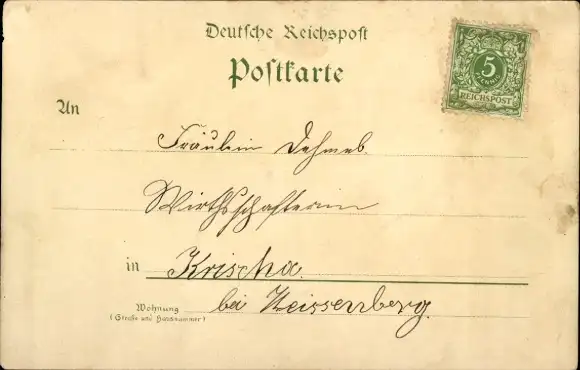 Deutsche Reichspost
Postkarte
5
PFENNIG
REICHSPOST
An
Fräulein Dehmel
Wirthschafterin
in Krischa
bei Weissenberg.
Wohnung
(Straße und Hausnummer)